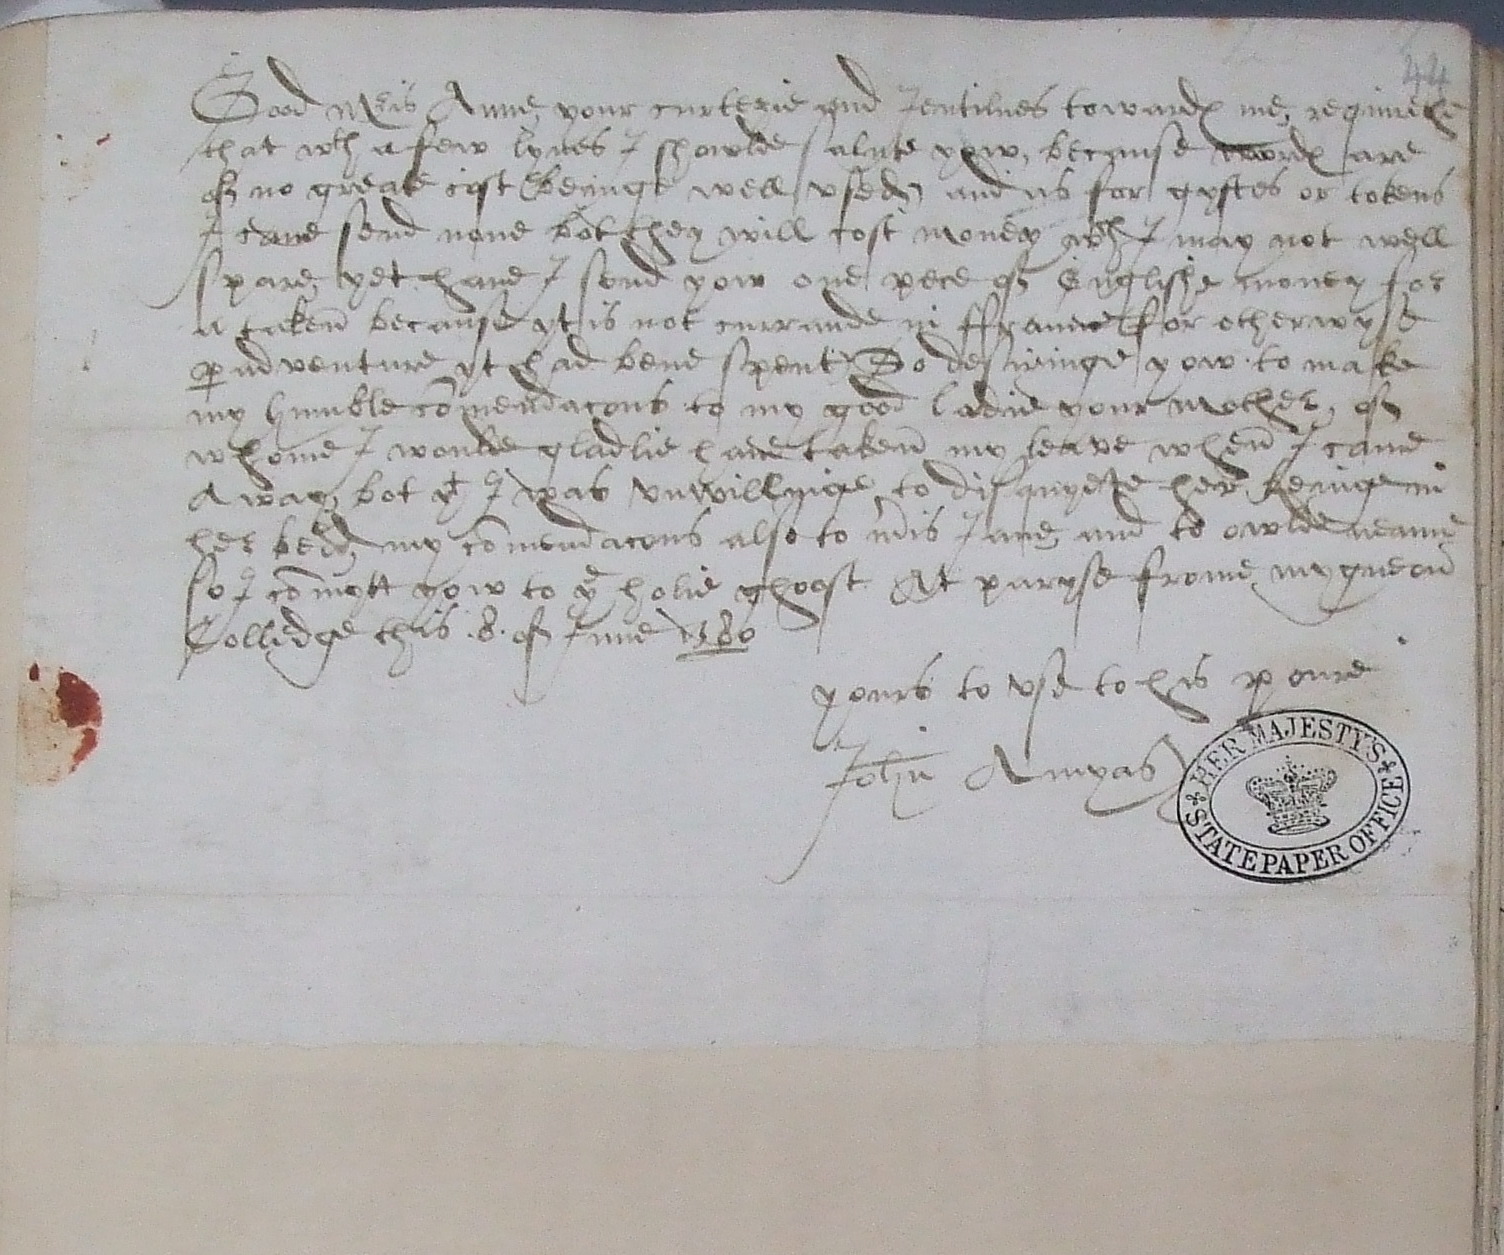 44
Good Mris Anne, your curtesie and Jentilnes towards me, requireth
that wth a few lynes I showlde salute yow, because words are
of no greate cost (beinge well used) and as for gyftes or tokens
I cane send none bot they will cost money wch I may not well
spare, yet have I send yow one pece of Englishe money for
a taken because yt is not currande in ffrance (for otherwyse
peradventure yt had bene spent) So desiringe yow to make
my humble comendacons to my good ladie your mother, of
whome I woulde gladlie have taken my leave when I came
away, bot yt I was unwillinge to disquyete her beinge in
her bedd, my comendacons also to mris Jane, and to owlde
so I comytt yow to ye holie ghoost At paryse frome
Colledge this .8. of June 1580
yours to use to his powre
John Amyas
HER MAJESTY'S
STATE PAPER OFFICE